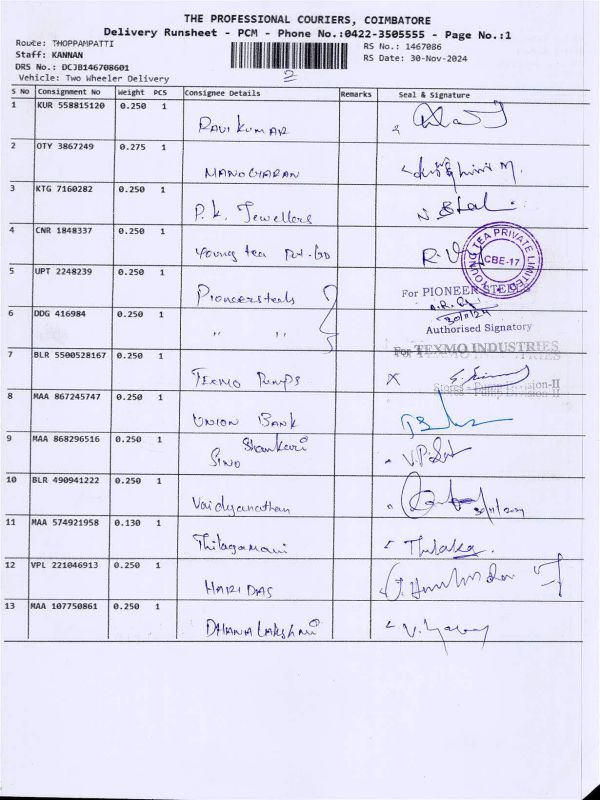 THE PROFESSIONAL COURIERS, COIMBATORE
Delivery Runsheet - PCM - Phone No.:0422-3505555 - Page No.:1
Route: THOPPAMPATTI
RS No.: 1467086
Staff: KANNAN
RS Date: 30-Nov-2024
DRS No.: DCJB146708601
Vehicle: Two Wheeler Delivery
2
S No Consignment No Weight PCS Consignee Details Remarks Seal & Signature
1 KUR 558815120 0.250 1
RAVI KUMAR
2 OTY 3867249 0.275 1
MANOHARAN
3 KTG 7160282 0.250 1
P.K. Jewellers
4 CNR 1848337 0.250 1
Young tea Pvt. Ltd
YOUNG TEA PRIVATE LIMITED
CBE-17
5 UPT 2248239 0.250 1
Pioneersteels
For PIONEER STEELS
30/11/24
6 DDG 416984 0.250 1
" "
Authorised Signatory
7 BLR 5500528167 0.250 1
For TEXMO INDUSTRIES
TEXMO PUMPS X
Stores - Pump Division-II
8 MAA 867245747 0.250 1
UNION BANK
9 MAA 868296516 0.250 1
Shankari
SINO
10 BLR 490941222 0.250 1
Vaidyanathan 30/11/2024
11 MAA 574921958 0.130 1
Thilagamani Thilaka.
12 VPL 221046913 0.250 1
HARIDAS
13 MAA 107750861 0.250 1
DHANALAKSHMI